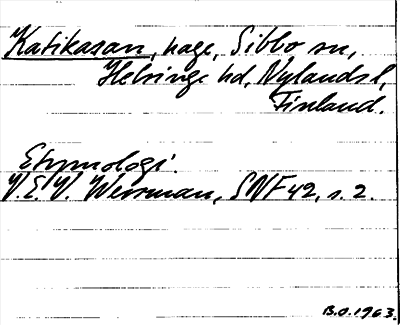 Katikasan, hage, Sibbo sn,
Helsinge hd, Nylands l,
Finland.
Etymologi.
V.E.V. Wessman, SNF 42, s. 2.
B.O. 1963.